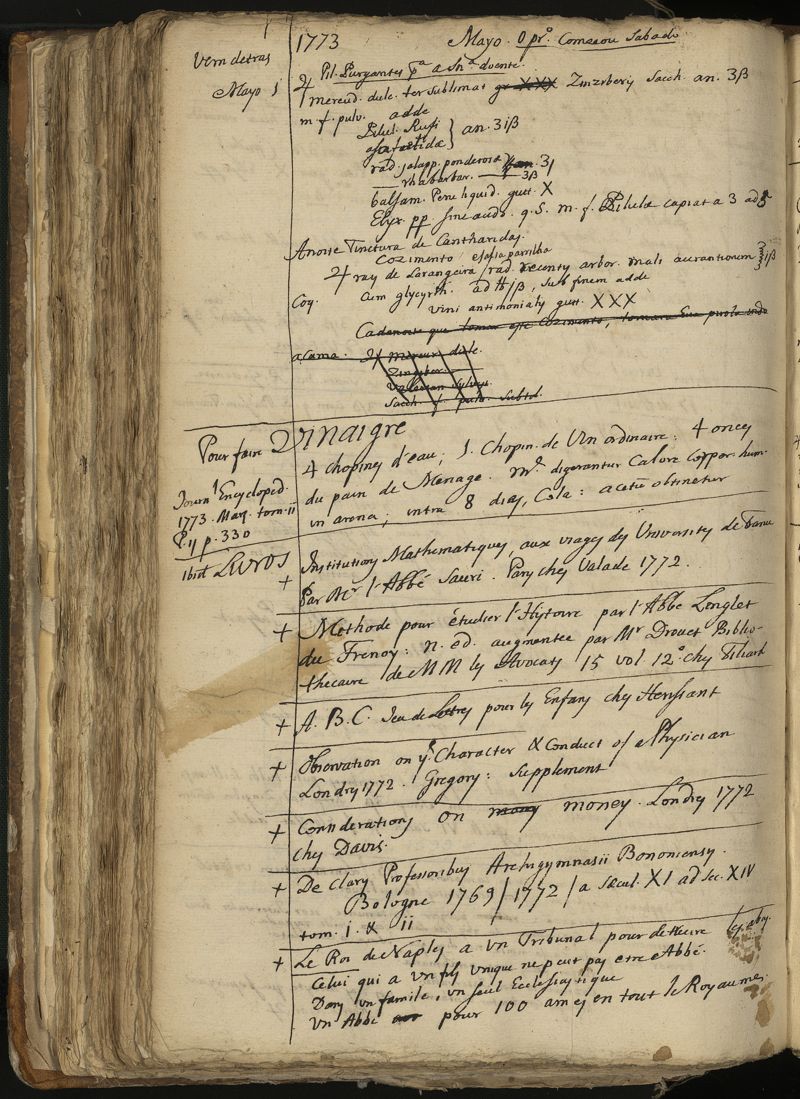 1773 Mayo. O pr.º Comesou Sabado
Vem detras
Mayo 1
Pil. Purgantes p.ª a Snr.ª doente.
♃ mercud. dulc. ter sublimat gr XXX Zinzrberis Sacch. an. ʒß
m. f. pulv. adde
Pilul. Ruffi
asafoetidæ } an. ʒiß
rad. jalapp. ponderosæ ʒj
rhabarbar. ʒß
balsam. Peru liquid. gutt. X
Elix. pp. sine acido. q. S. m. f. Pilulæ capiat a 3 ad 5
A noite Tinctura de Cantharidas.
Cozimento esalsaparrilha
♃ rays de Larangeira / rad. recentis arbor. mali aurantiorum ℥iß
Coq. cum glycyrrh. ad ℔iß, sub finem adde
vini antimonialis gutt. XXX
Cada noite que tomar este Cozimento, tomara hua pirola indo
a cama. ♃ Mercur. dulc.
Zingiber.
Valerian sylves.
Sacch. f. pulv. Subtil.
Pour faire Vinaigre
4 chopines d'eau; 1. Chopin. de Vin ordinaire: 4 onces
du pain de Menage. digerantur Calore Corpor. hum.
in arena; intra 8 dias, Cola: acetũ obtinetur
Journ.l Encycloped.
1773. Mars. tom. ii
P. ij p. 330
ibid Livros
+ Institutions Mathematiques, aux usages des Universités de France
Par Mr l'Abbé Sauri. Paris ches Valade 1772.
+ Methode pour étudier l'Histoire par l'Abbe Lenglet
du Frenoy: n. ed. augmentée par Mr Drouet Biblio-
thecaire de MM les Avocats 15 vol. 12º. ches Tiliard
+ A. B. C. Jeu de Lettres pour les Enfans ches Herissant
+ Observation on ye Character & Conduct of a Physician
Londrs 1772. Gregory: Supplement
+ Considerations on many money. Londrs 1772
ches Davis.
+ De Claris Professoribus Archigymnasii Bononiensis.
Bologne 1769 / 1772 / a Sæcul. XI ad sec. XIV
tom. I. & ii
+ Le Roi de Naples a un Tribunal pour detruire les abus.
Celui qui a un fils unique ne peut pas etre Abbé.
Dans un famile, un seul Ecclesiastique
Un Abbé pour 100 ames en tout le Royaumes.